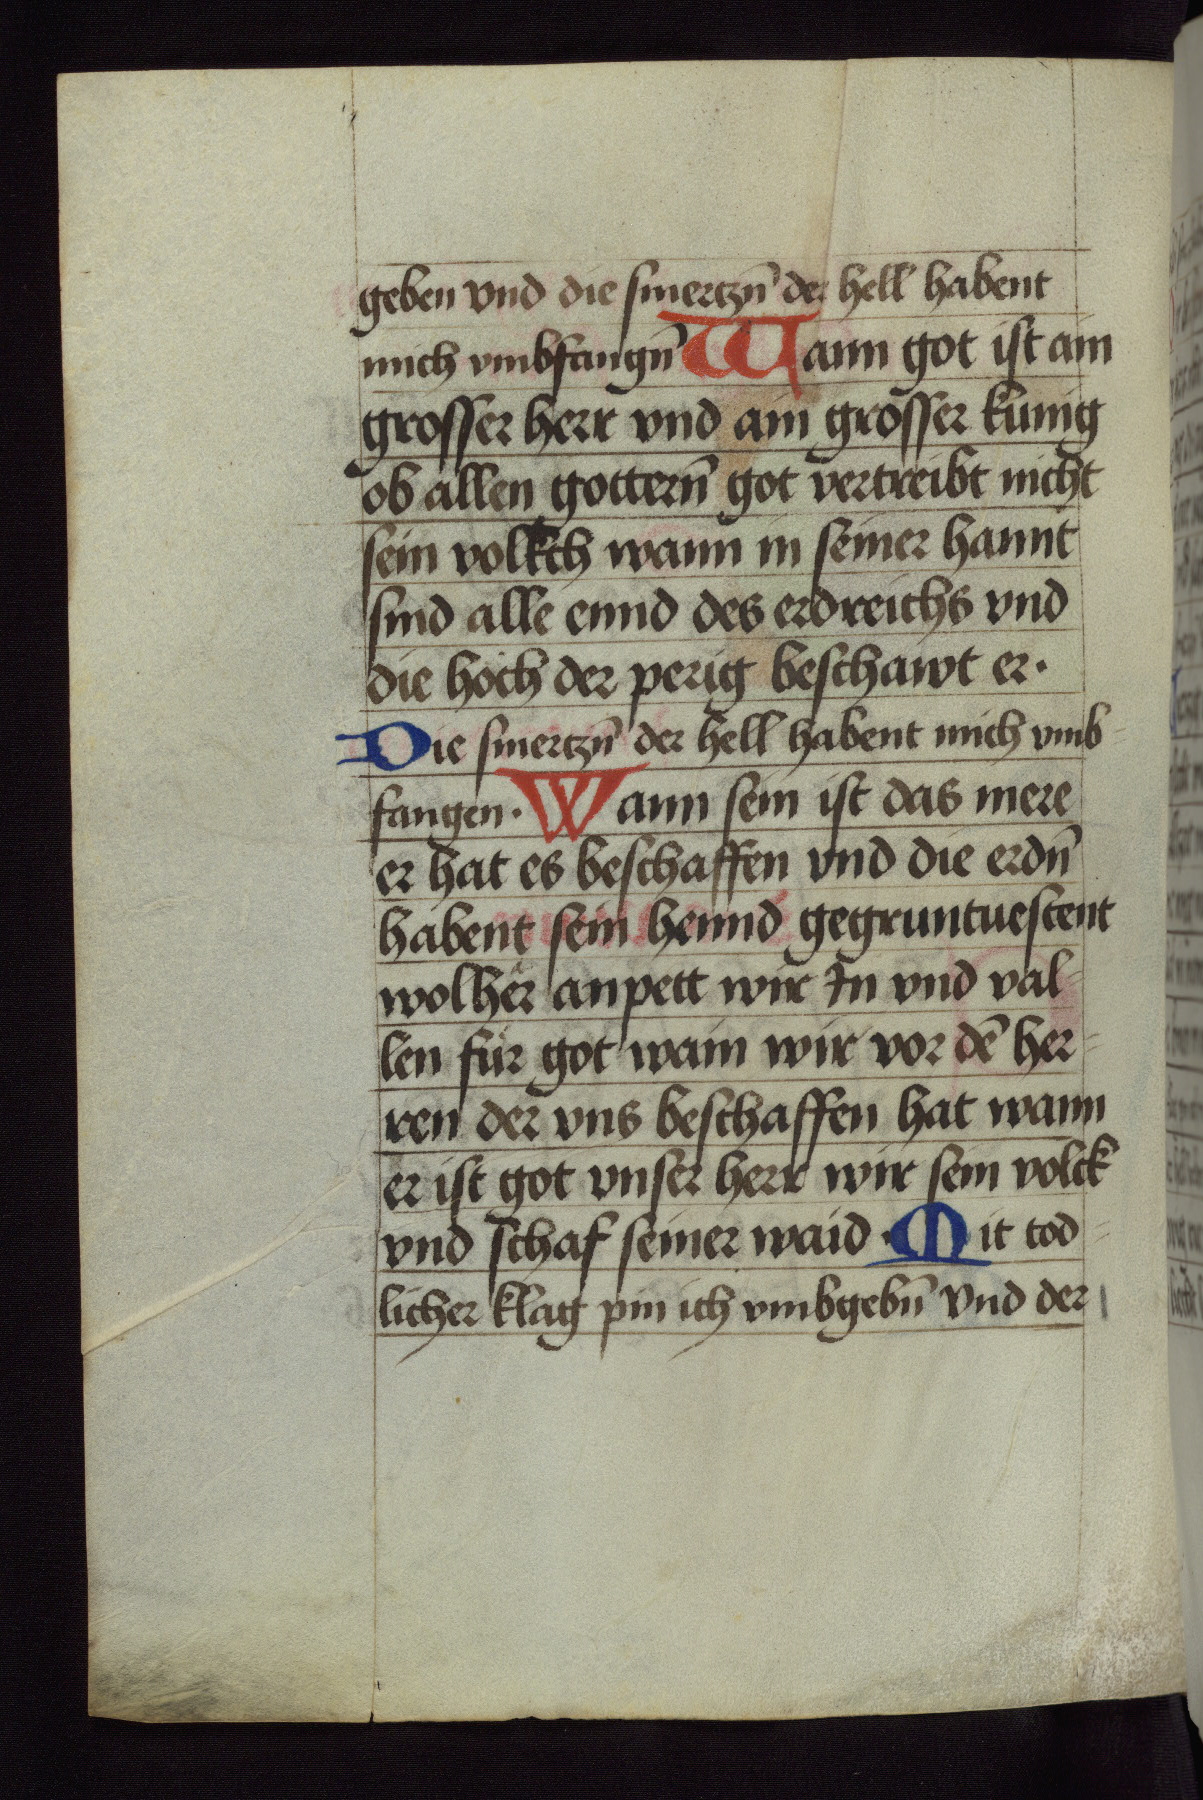 geben vnd die smertzn̄ der hell habent
mich vmbfangn̄ Wann got ist ain
grosser herr vnd ain grosser kůnig
ob allen gottern̄ got vertreibt nicht
sein volkch wann in seiner hannt
sind alle ennd des erdreichs vnd
die höch der perig beschawt er·
Die smertzn̄ der hell habent mich vmb-
fangen· Wann sein ist das mere
er hat es beschaffen vnd die erdn̄
habent sein hennd gegruntuestent
wolher anpett wir In vnd val-
len für got wain wir vor dē her-
ren der vns beschaffen hat wann
er ist got vnser herr wir sein volck
vnd schaf seiner waid · Mit tod-
licher klag pin ich vmbgebn̄ Vnd der